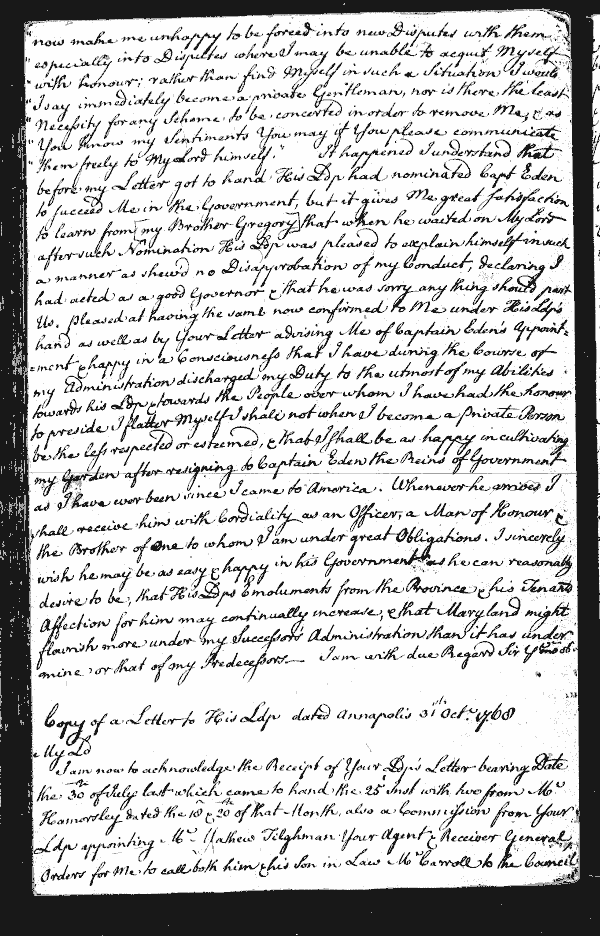 "now make me unhappy to be forced into new Disputes with them
"especially into Disputes where I may be unable to acquit Myself
"with honour; rather than find Myself in such a Situation I would
"I say immediately become a private Gentleman, nor is there the least
"Necessity for any Scheme to be concerted in order to remove Me, & as
"You know my Sentiments You may if You please communicate
"them freely to My Lord himself." It happened I understand that
before my Letter got to hand His Ldp had nominated Capt Eden
to succeed Me in the Government, but it gives Me great Satisfaction
to learn from [my Brother Gregory] that when he waited on My Lord
after such Nomination His Ldp was pleased to explain himself in such
a manner as shewd no Disapprobation of my Conduct, declaring I
had acted as a good Governor & that he was sorry any thing should part
Us. pleased at having the same now confirmed to Me under His Ldp's
hand as well as by Your Letter advising Me of Captain Eden's Appoint=
=ment & happy in a Consciousness that I have during the Course of
my Administration discharged my Duty to the utmost of my Abilities
towards his Ldp & towards the People over whom I have had the honour
to preside I flatter Myself I shall not when I become a private Person
be the less respected or esteemed, & that I shall be as happy in cultivating
my Garden after resigning to Captain Eden the Reins of Government
as I have ever been since I came to America. Whenever he arrives I
shall receive him with Cordiality as an Officer, a Man of Honour &
the Brother of One to whom I am under great Obligations. I sincerely
wish he may be as easy & happy in his Government as he can reasonably
desire to be, that His Ldps Emoluments from the Province & his Tenants
Affection for him may continually increase, & that Maryland might
flourish more under my Successors Administration than it has under
mine or that of my Predecessors— I am with due Regard Sir
Copy of a Letter to His Ldp dated Annapolis 31th Octr. 1768
My Ld
I am now to acknowledge the Receipt of Your Ldp's Letter bearing Date
the 30th of July last which came to hand the 25t Inst with two from Mr
Hamersley dated the 18th & 20th of that Month, also a Commission from Your
Ldp appointing Mr. Mathew Tilghman Your Agent & Receiver General,
Orders for Me to call both him & his Son in Law Mr Carroll to the Council